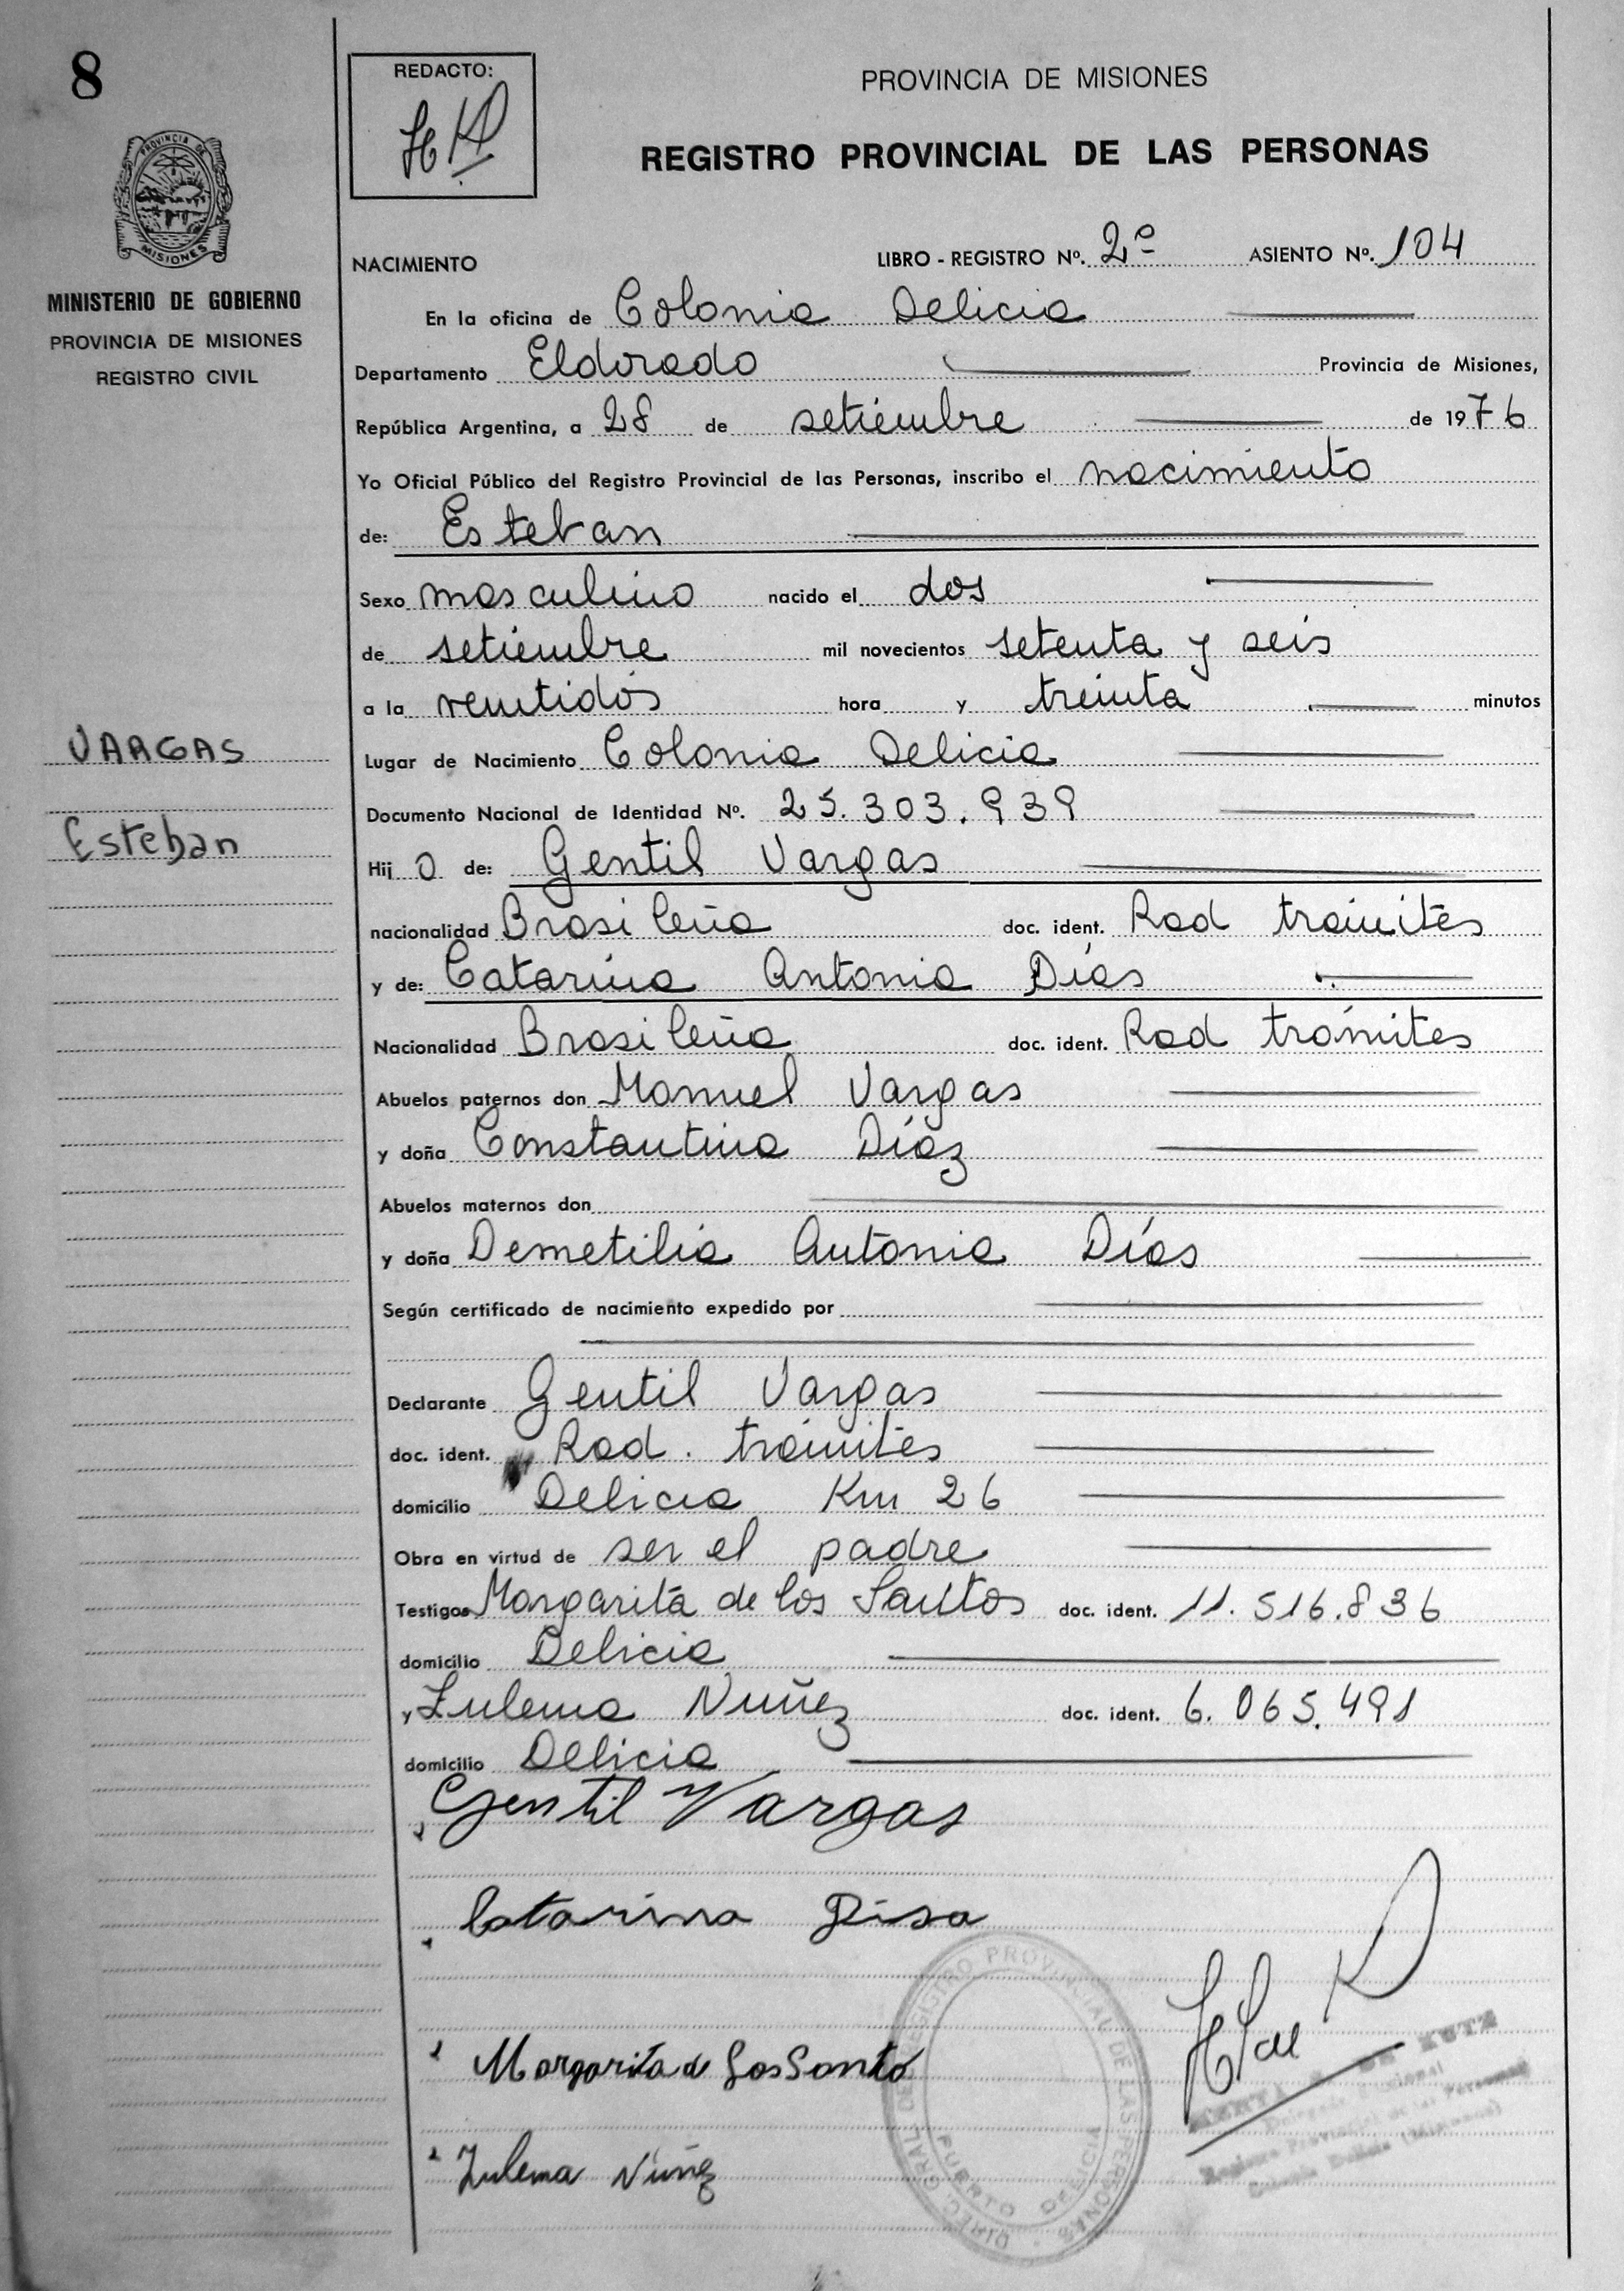 8
REDACTO:
PROVINCIA DE MISIONES
REGISTRO PROVINCIAL DE LAS PERSONAS
PROVINCIA DE
MISIONES
MINISTERIO DE GOBIERNO
PROVINCIA DE MISIONES
REGISTRO CIVIL
NACIMIENTO LIBRO - REGISTRO Nº. 2º ASIENTO Nº. 104
En la oficina de Colonia Delicia
Departamento Eldorado Provincia de Misiones,
República Argentina, a 28 de setiembre de 1976
Yo Oficial Público del Registro Provincial de las Personas, inscribo el nacimiento
de: Esteban
Sexo masculino nacido el dos
de setiembre mil novecientos setenta y seis
a la veintidós hora y treinta minutos
VARGAS
Lugar de Nacimiento Colonia Delicia
Documento Nacional de Identidad Nº. 25.303.939
Esteban
Hij o de: Gentil Vargas
nacionalidad Brasileña doc. ident. Rad trámites
y de: Catarina Antonia Días
Nacionalidad Brasileña doc. ident. Rad trámites
Abuelos paternos don Manuel Vargas
y doña Constantina Díaz
Abuelos maternos don
y doña Demetilia Antonia Días
Según certificado de nacimiento expedido por
Declarante Gentil Vargas
doc. ident. Rad. trámites
domicilio Delicia Km 26
Obra en virtud de ser el padre
Testigos Margarita de los Santos doc. ident. 11.516.836
domicilio Delicia
y Zulema Nuñez doc. ident. 6.065.491
domicilio Delicia
Gentil Vargas
Catarina Disa
Margarita de Los Santo
Zulema Núñez
DIREC. GRAL. DEL REGISTRO PROVINCIAL DE LAS PERSONAS
PUERTO DELICIA
DE KUTZ
Registro Provincial de las Personas
Colonia Delicia (Misiones)